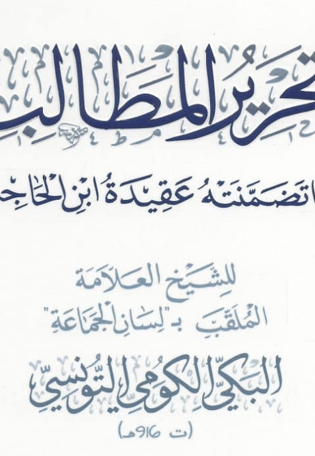 تحرير المطالب
تضمنته عقيدة ابن الحاجـ
للشيخ العلامة
الملقب بـ"لسان الجماعة"
البكي الكومي التونسي
(ت 916هـ)